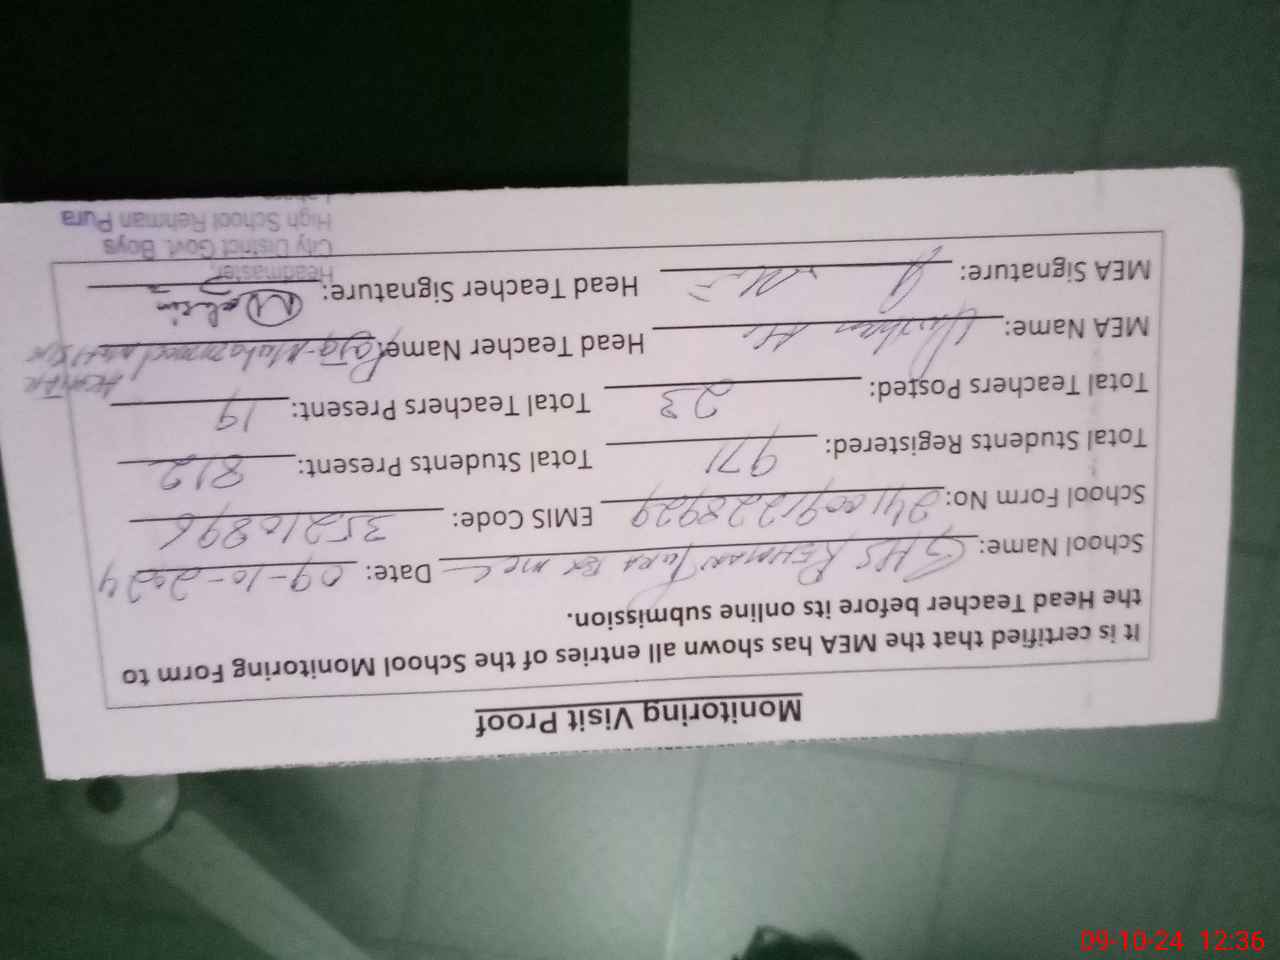 Monitoring Visit Proof
It is certified that the MEA has shown all entries of the School Monitoring Form to
the Head Teacher before its online submission.
School Name: GHS REHMAN PURA Date: 09-10-2024
School Form No: 24110091228929 EMIS Code: 35210896
Total Students Registered: 971 Total Students Present: 812
Total Teachers Posted: 23 Total Teachers Present: 19
MEA Name: Head Teacher Name: Raja Muhammad
MEA Signature: Head Teacher Signature:
Headmaster,
City District Govt. Boys
High School Rehman Pura
Lahore
09-10-24 12:36